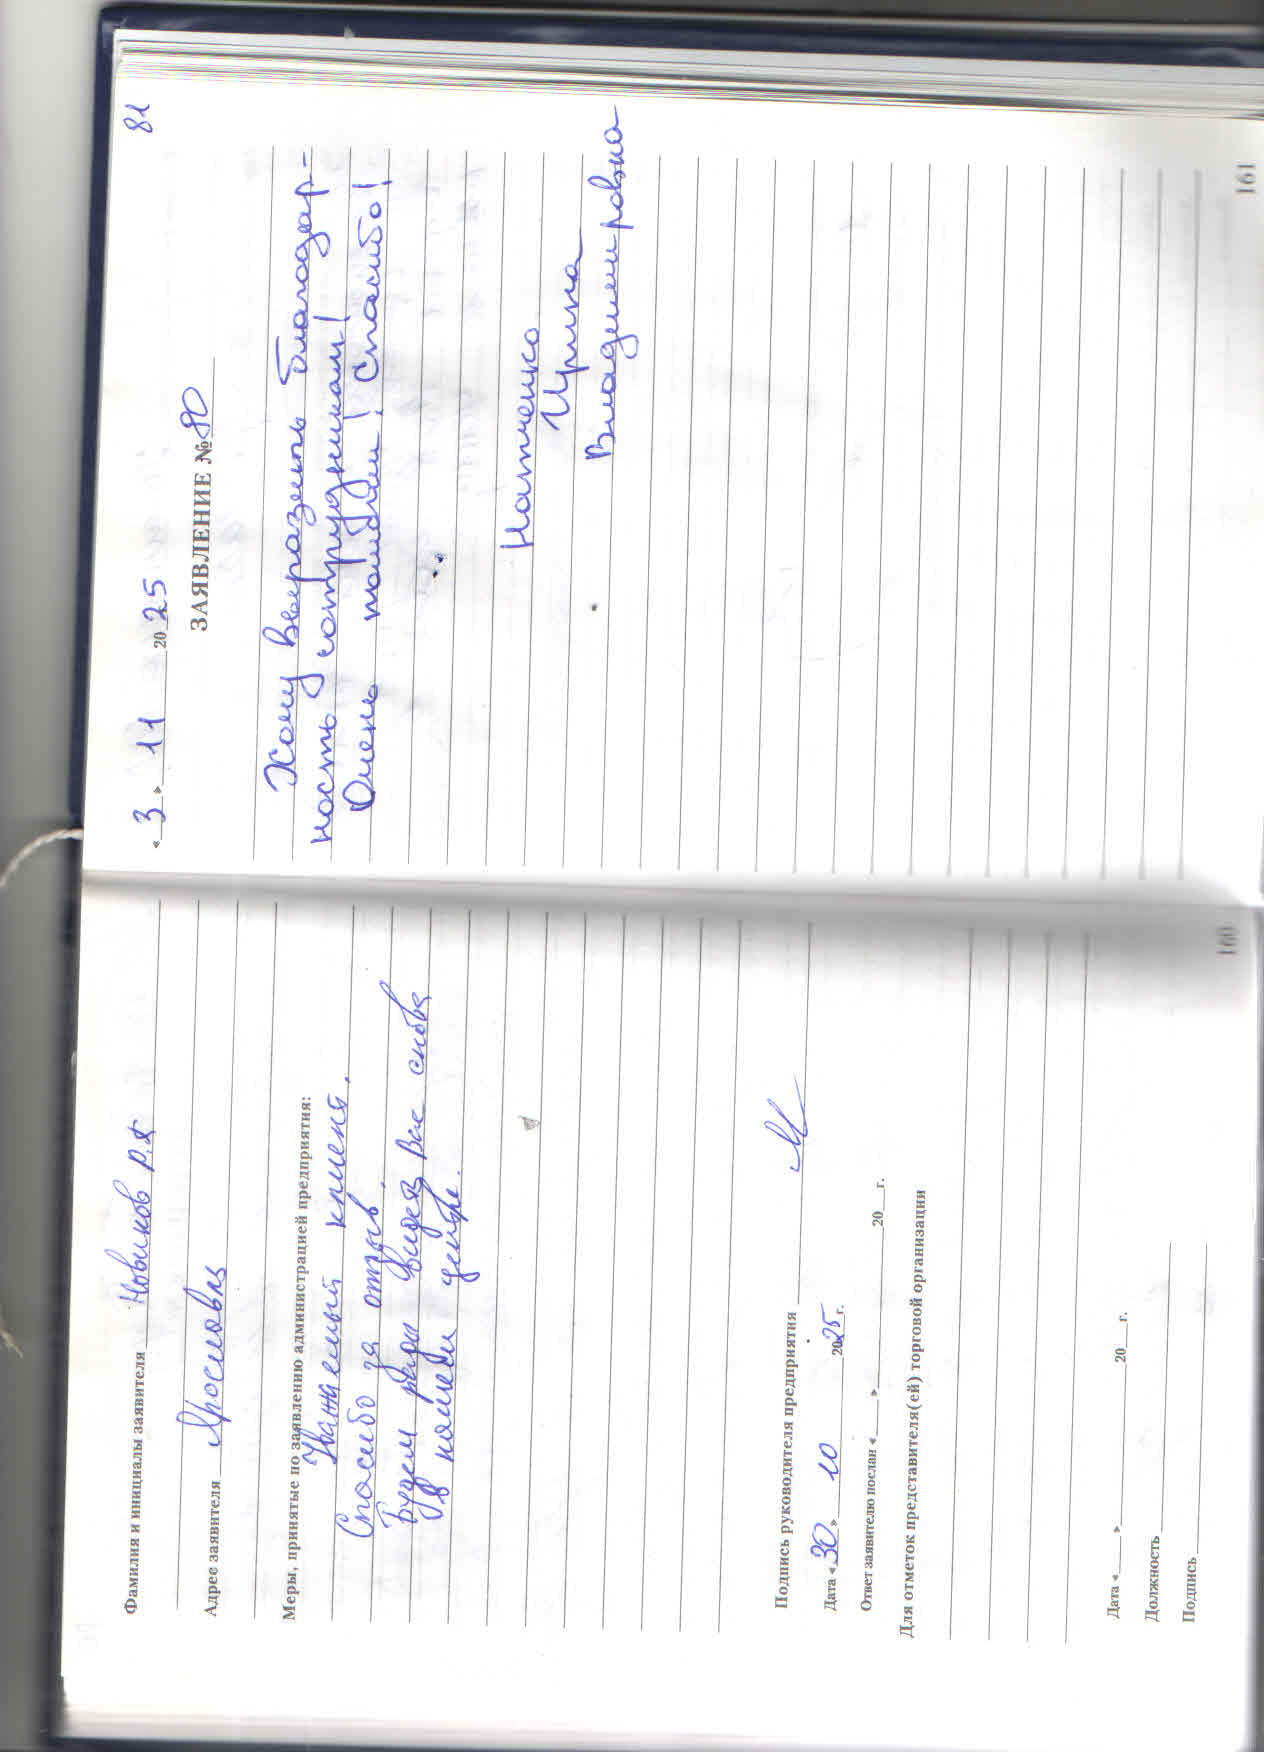 Фамилия и инициалы заявителя Новиков Р.А
Адрес заявителя Ярославль
Меры, принятые по заявлению администрацией предприятия:
Уважаемый клиент.
Спасибо за отзыв,
Будем рады видеть Вас снова
в нашем центре.
Подпись руководителя предприятия
Дата «30» 10 2025 г.
Ответ заявителю послан «___» 20 г.
Для отметок представителя(ей) торговой организации
Дата «___» 20 г.
Должность
Подпись
160
81
«3» 11 2025
ЗАЯВЛЕНИЕ № 80
Хочу выразить благодар-
ность сотрудникам!
Очень! Спасибо!
Ирина
Владимировна
161